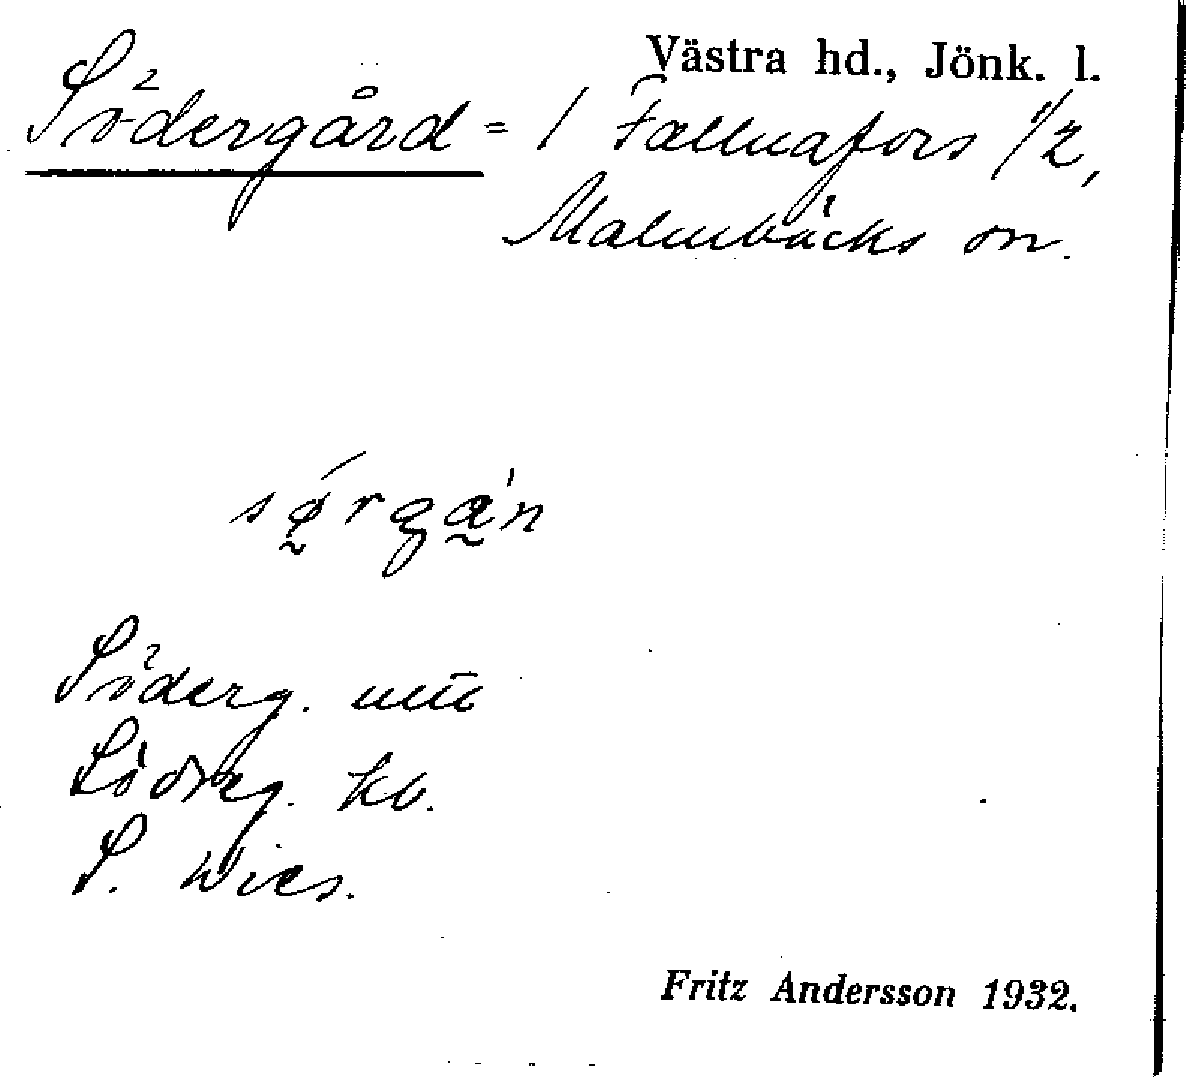 Västra hd., Jönk. l.
Södergård = / Fallnafors 1/2,
Malmbäcks sn.
sǿ̰rga̰'n
Söderg.
Söderg. kb.
S. Wies.
Fritz Andersson 1932.